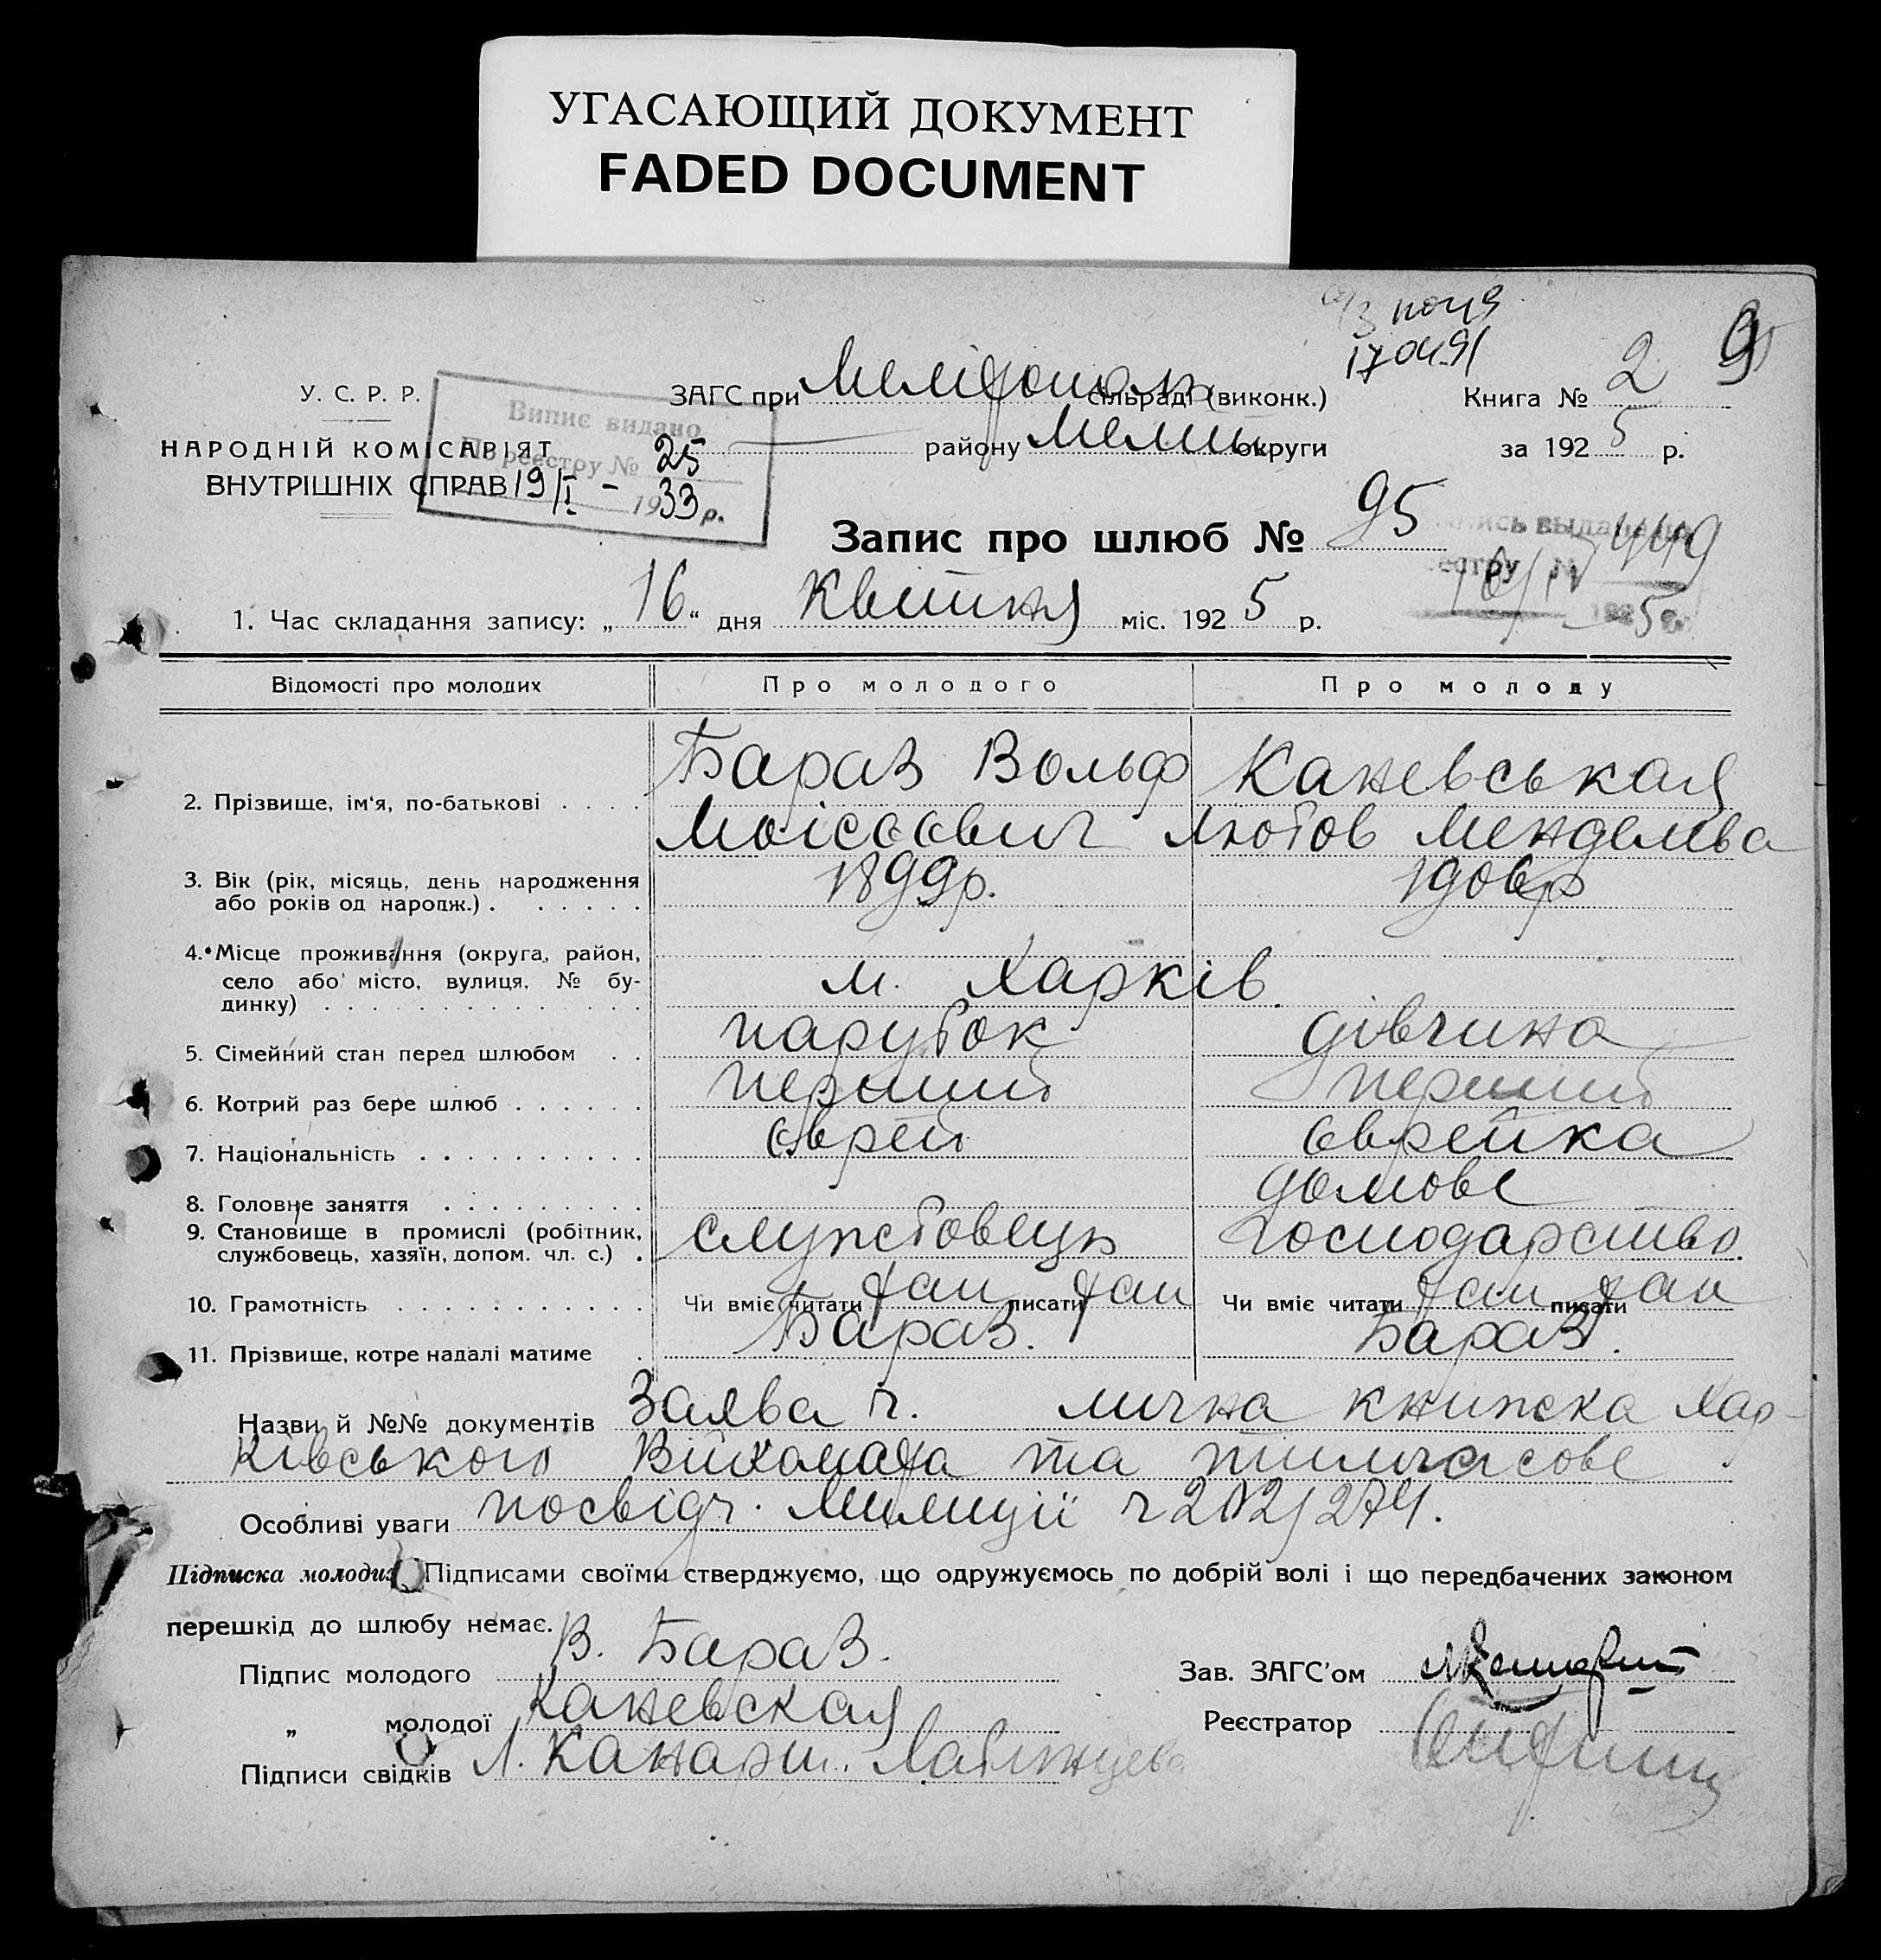 УГАСАЮЩИЙ ДОКУМЕНТ
FADED DOCUMENT
17 04 91
У. С. Р. Р.
ЗАГС при Мелітополь сільраді (виконк.)
Книга № 2
9
НАРОДНІЙ КОМІСАРІЯТ
ВНУТРІШНІХ СПРАВ
Випис видано
По реестру № 25
19/I - 1933 р.
району Мелит округи
за 1925 р.
Запис про шлюб № 95
выдана
реестру № 449
1925 г.
1. Час складання запису: „16“ дня Квітня міс. 1925 р.
Відомості про молодих
Про молодого
Про молоду
2. Прізвище, ім'я, по-батькові . . . .
Бараз Вольф
Моісєєвич
Каневськая
Любов Менделева
3. Вік (рік, місяць, день народження
або років од народж.) . . . . . .
1899р.
1906р
4. Місце проживання (округа, район,
село або місто, вулиця, № бу-
динку) . . . . . . . . . . . . .
м. Харків.
5. Сімейний стан перед шлюбом . .
парубок
дівчина
6. Котрий раз бере шлюб . . . . . .
перший
перший
7. Національність . . . . . . . . . .
єврей
єврейка
8. Головне заняття . . . . . . . . .
9. Становище в промислі (робітник,
службовець, хазяїн, допом. чл. с.) .
службовець
домове
господарство.
10. Грамотність . . . . . . . . . . .
Чи вміє читати так писати так
Чи вміє читати так писати так
11. Прізвище, котре надалі матиме .
Бараз.
Бараз.
Назви й №№ документів Заява ч. лична книжка Хар-
ківського Військомата та тимчасове
Особливі уваги посвідч. Милиції ч 202/274.
Підписка молодих Підписами своїми стверджуємо, що одружуємось по добрій волі і що передбачених законом
перешкід до шлюбу немає.
Підпис молодого В. Бараз.
Зав. ЗАГС'ом
„ молодої Каневская
Реєстратор
Підписи свідків Л. Канарш.